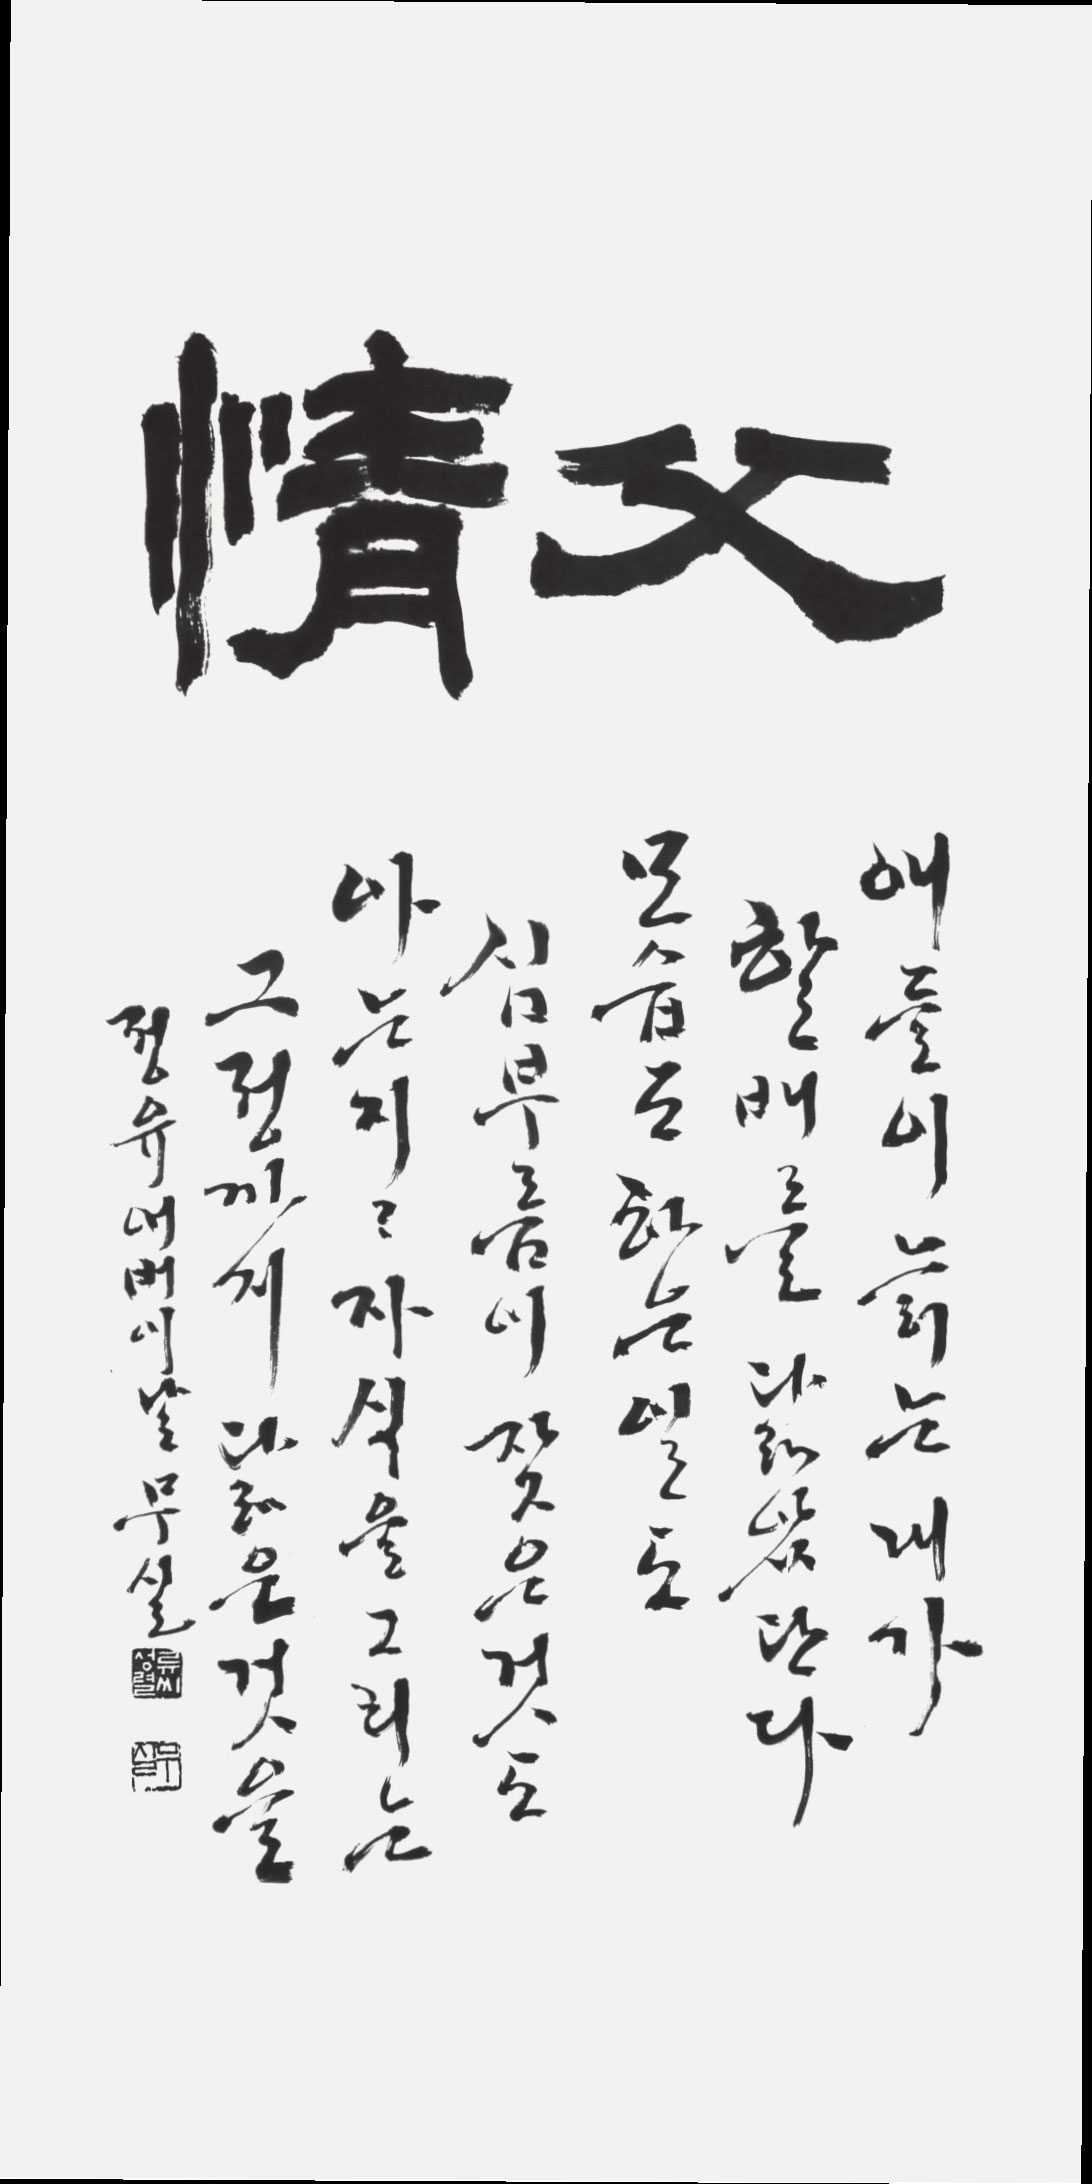 父情
애들이 늙는 내가
할배를 닮았단다
모습도 하는 일도
심부름이 잦은 것도
아는지 자식을 그리는
그 정까지 닮은 것을
정유 어버이날 무실
류씨성렬
무실